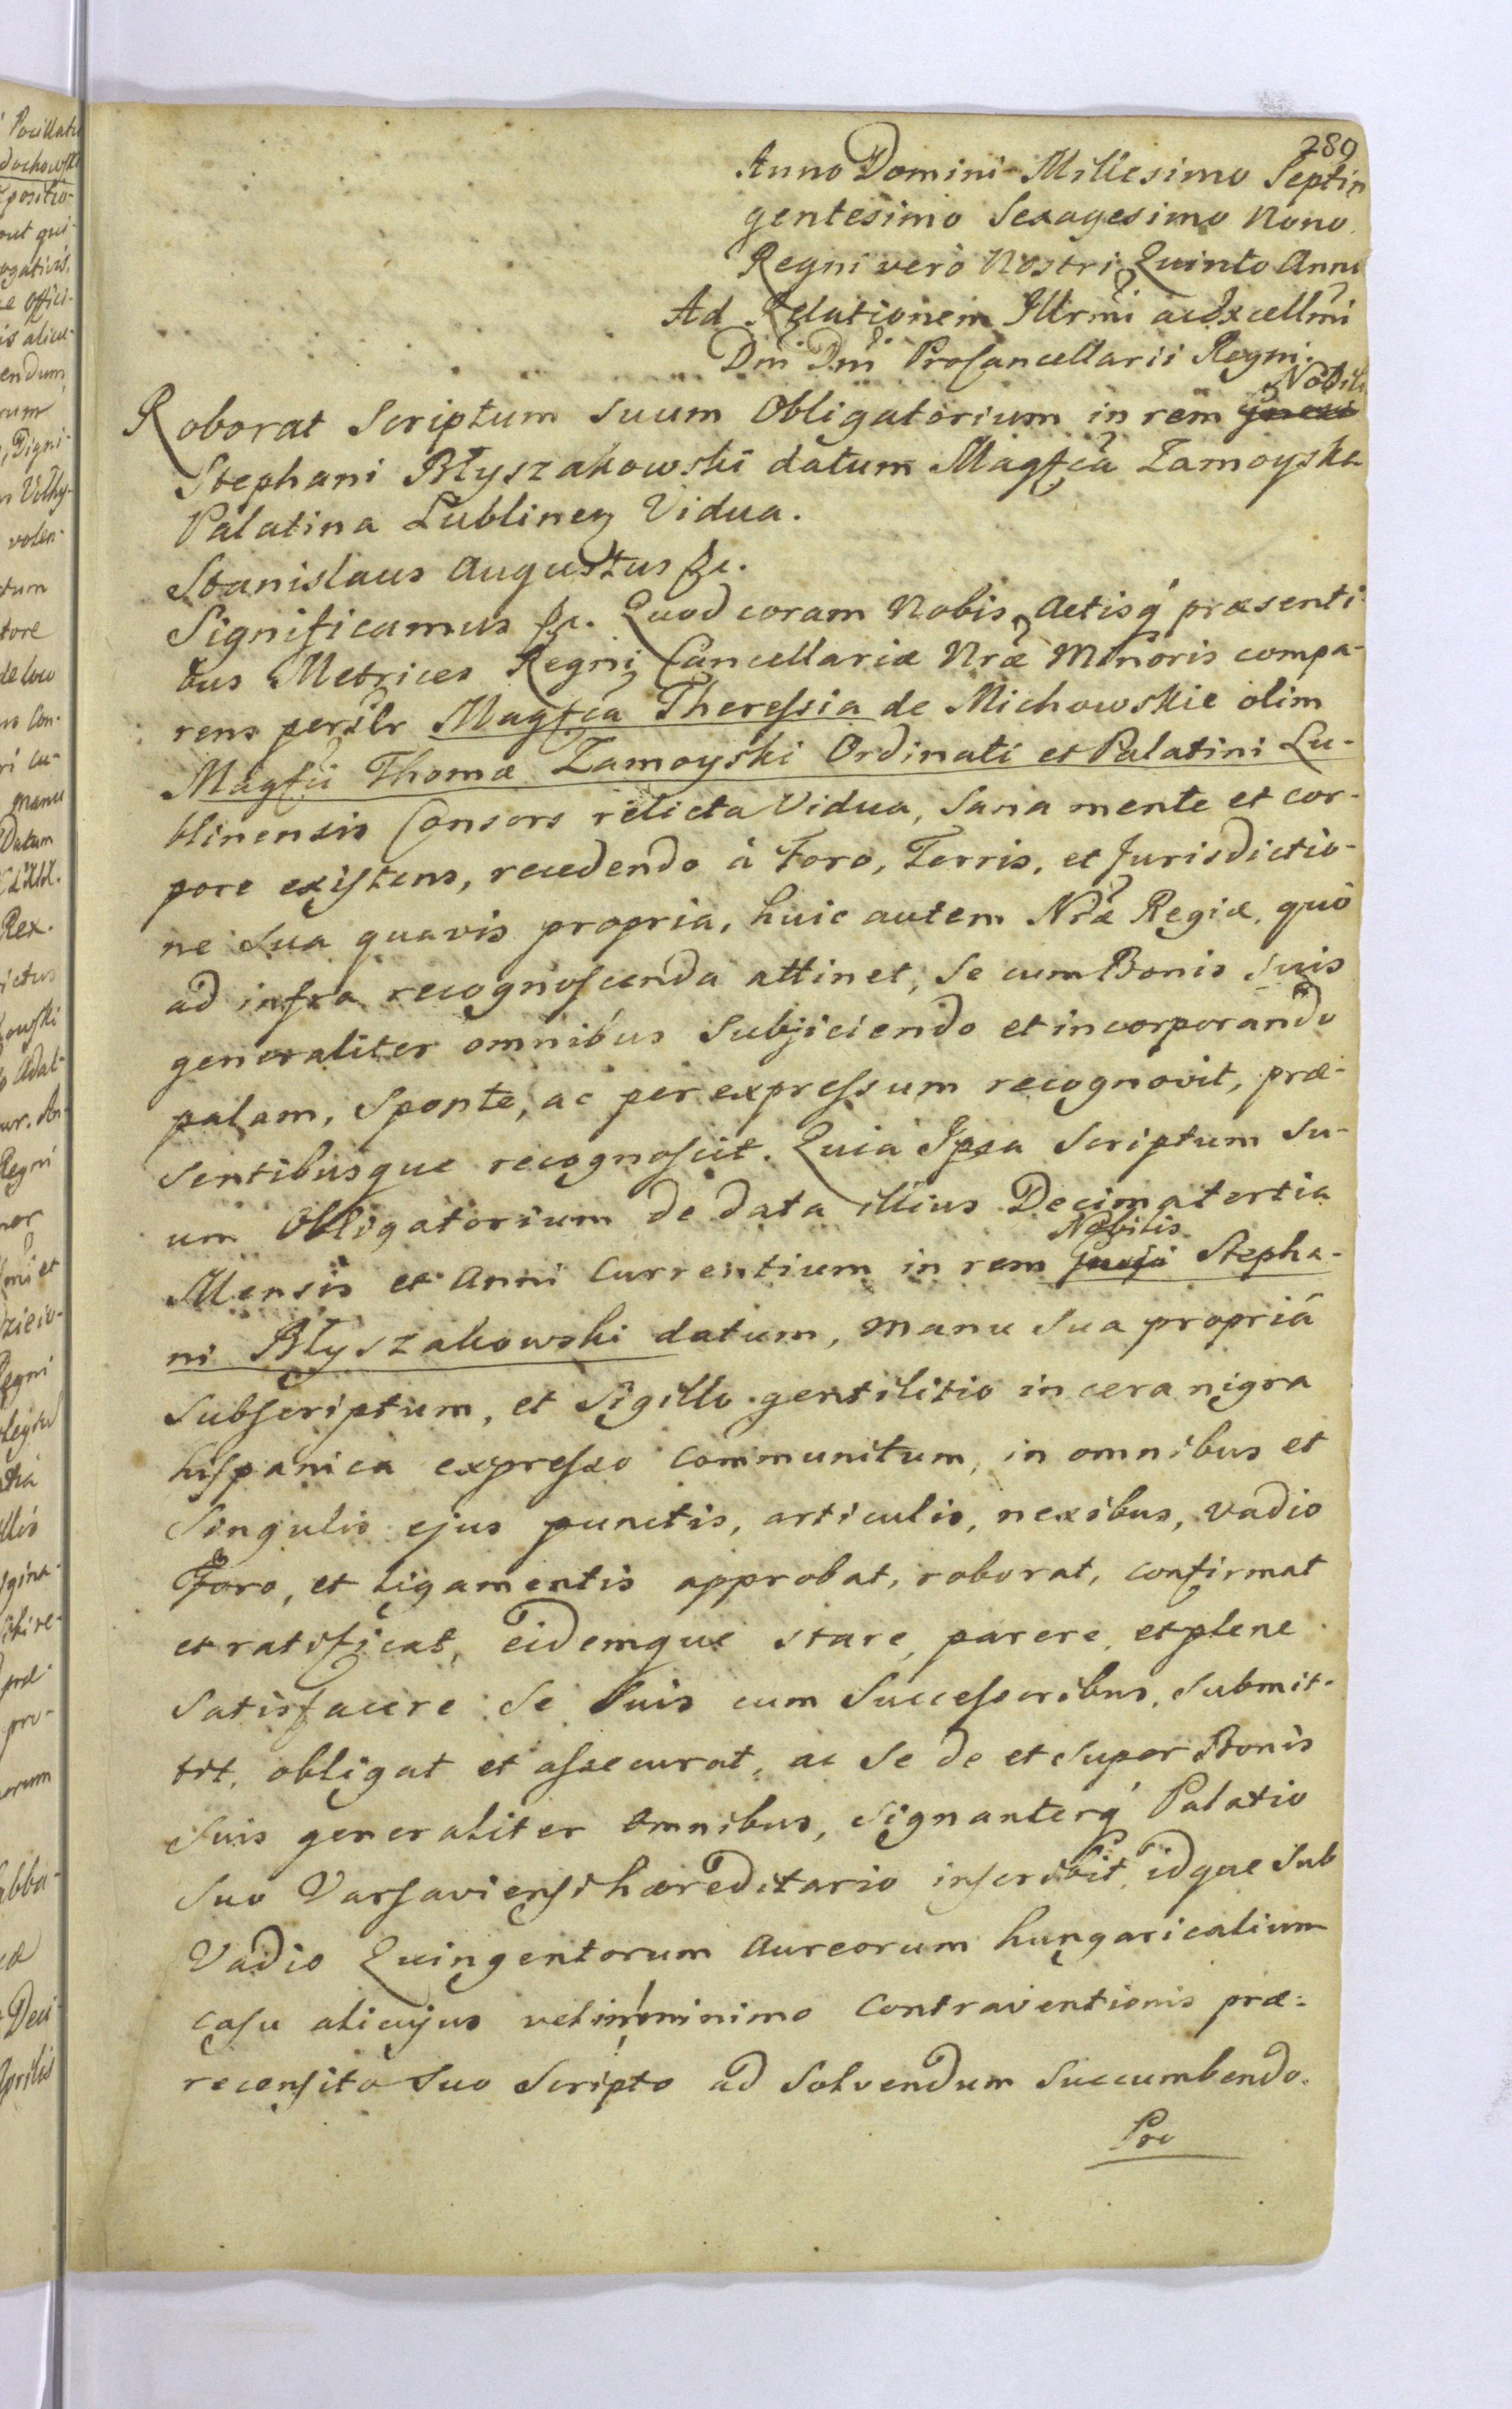 289
Anno Domini Millesimo Septin
gentesimo Sexagesimo Nono.
Regni vero Nostri Quinto Anno
Ad Relationem Illrmi ac Excellmi
Dni Dni ProCancellarii Regni.
Nobili
Roborat Scriptum suum Obligatorium in rem
Stephani Błyszakowski datum Magfca Zamoyska
Palatina Lublinen Vidua.
Stanislaus Augustus &c.
Significamus &c. Quod coram Nobis, Actisq' præsenti-
bus Metrices Regni Cancellariæ Nræ Minoris compa-
rens persolr Magfca Theressia de Michowskie olim
Magfci Thomæ Zamoyski Ordinati et Palatini Lu-
blinensis Consors relicta Vidua, Sana mente et cor-
pore existens, recedendo à Foro, Terris, et Jurisdictio-
ne Sua quavis propria, huic autem Nræ Regiæ, quò
ad infra recognoscenda attinet, Se cum Bonis Suis
generaliter omnibus Subjiciendo et incorporando
palam, Sponte, ac per expressum recognovit, præ-
sentibusque recognoscit. Quia Ipsa Scriptum Su-
um Obligatorium de data illius Decima tertia
Nobilis
Mensis et Anni Currentium in rem Stepha-
ni Błyszakowski datum, manu Sua propriâ
Subscriptum, et Sigillo gentilitio in cera nigra
hispanica expresso communitum, in omnibus et
Singulis ejus punctis, articulis, nexibus, vadio
Foro, et ligamentis approbat, roborat, confirmat
et ratificat, eidemque stare, parere, et plene
Satisfacere Se Suis cum Successoribus, submit-
tit, obligat et assecurat, ac Se de et Super Bonis
Suis generaliter omnibus, Signanterq' Palatio
Suo Varsaviensi hæreditario inscribit, idque Sub
Vadio Quingentorum Aureorum hungaricalium
casu alicujus vel in minimo Contraventionis præ-
recensito Suo Scripto ad Solvendum Succumbendo.
Pro